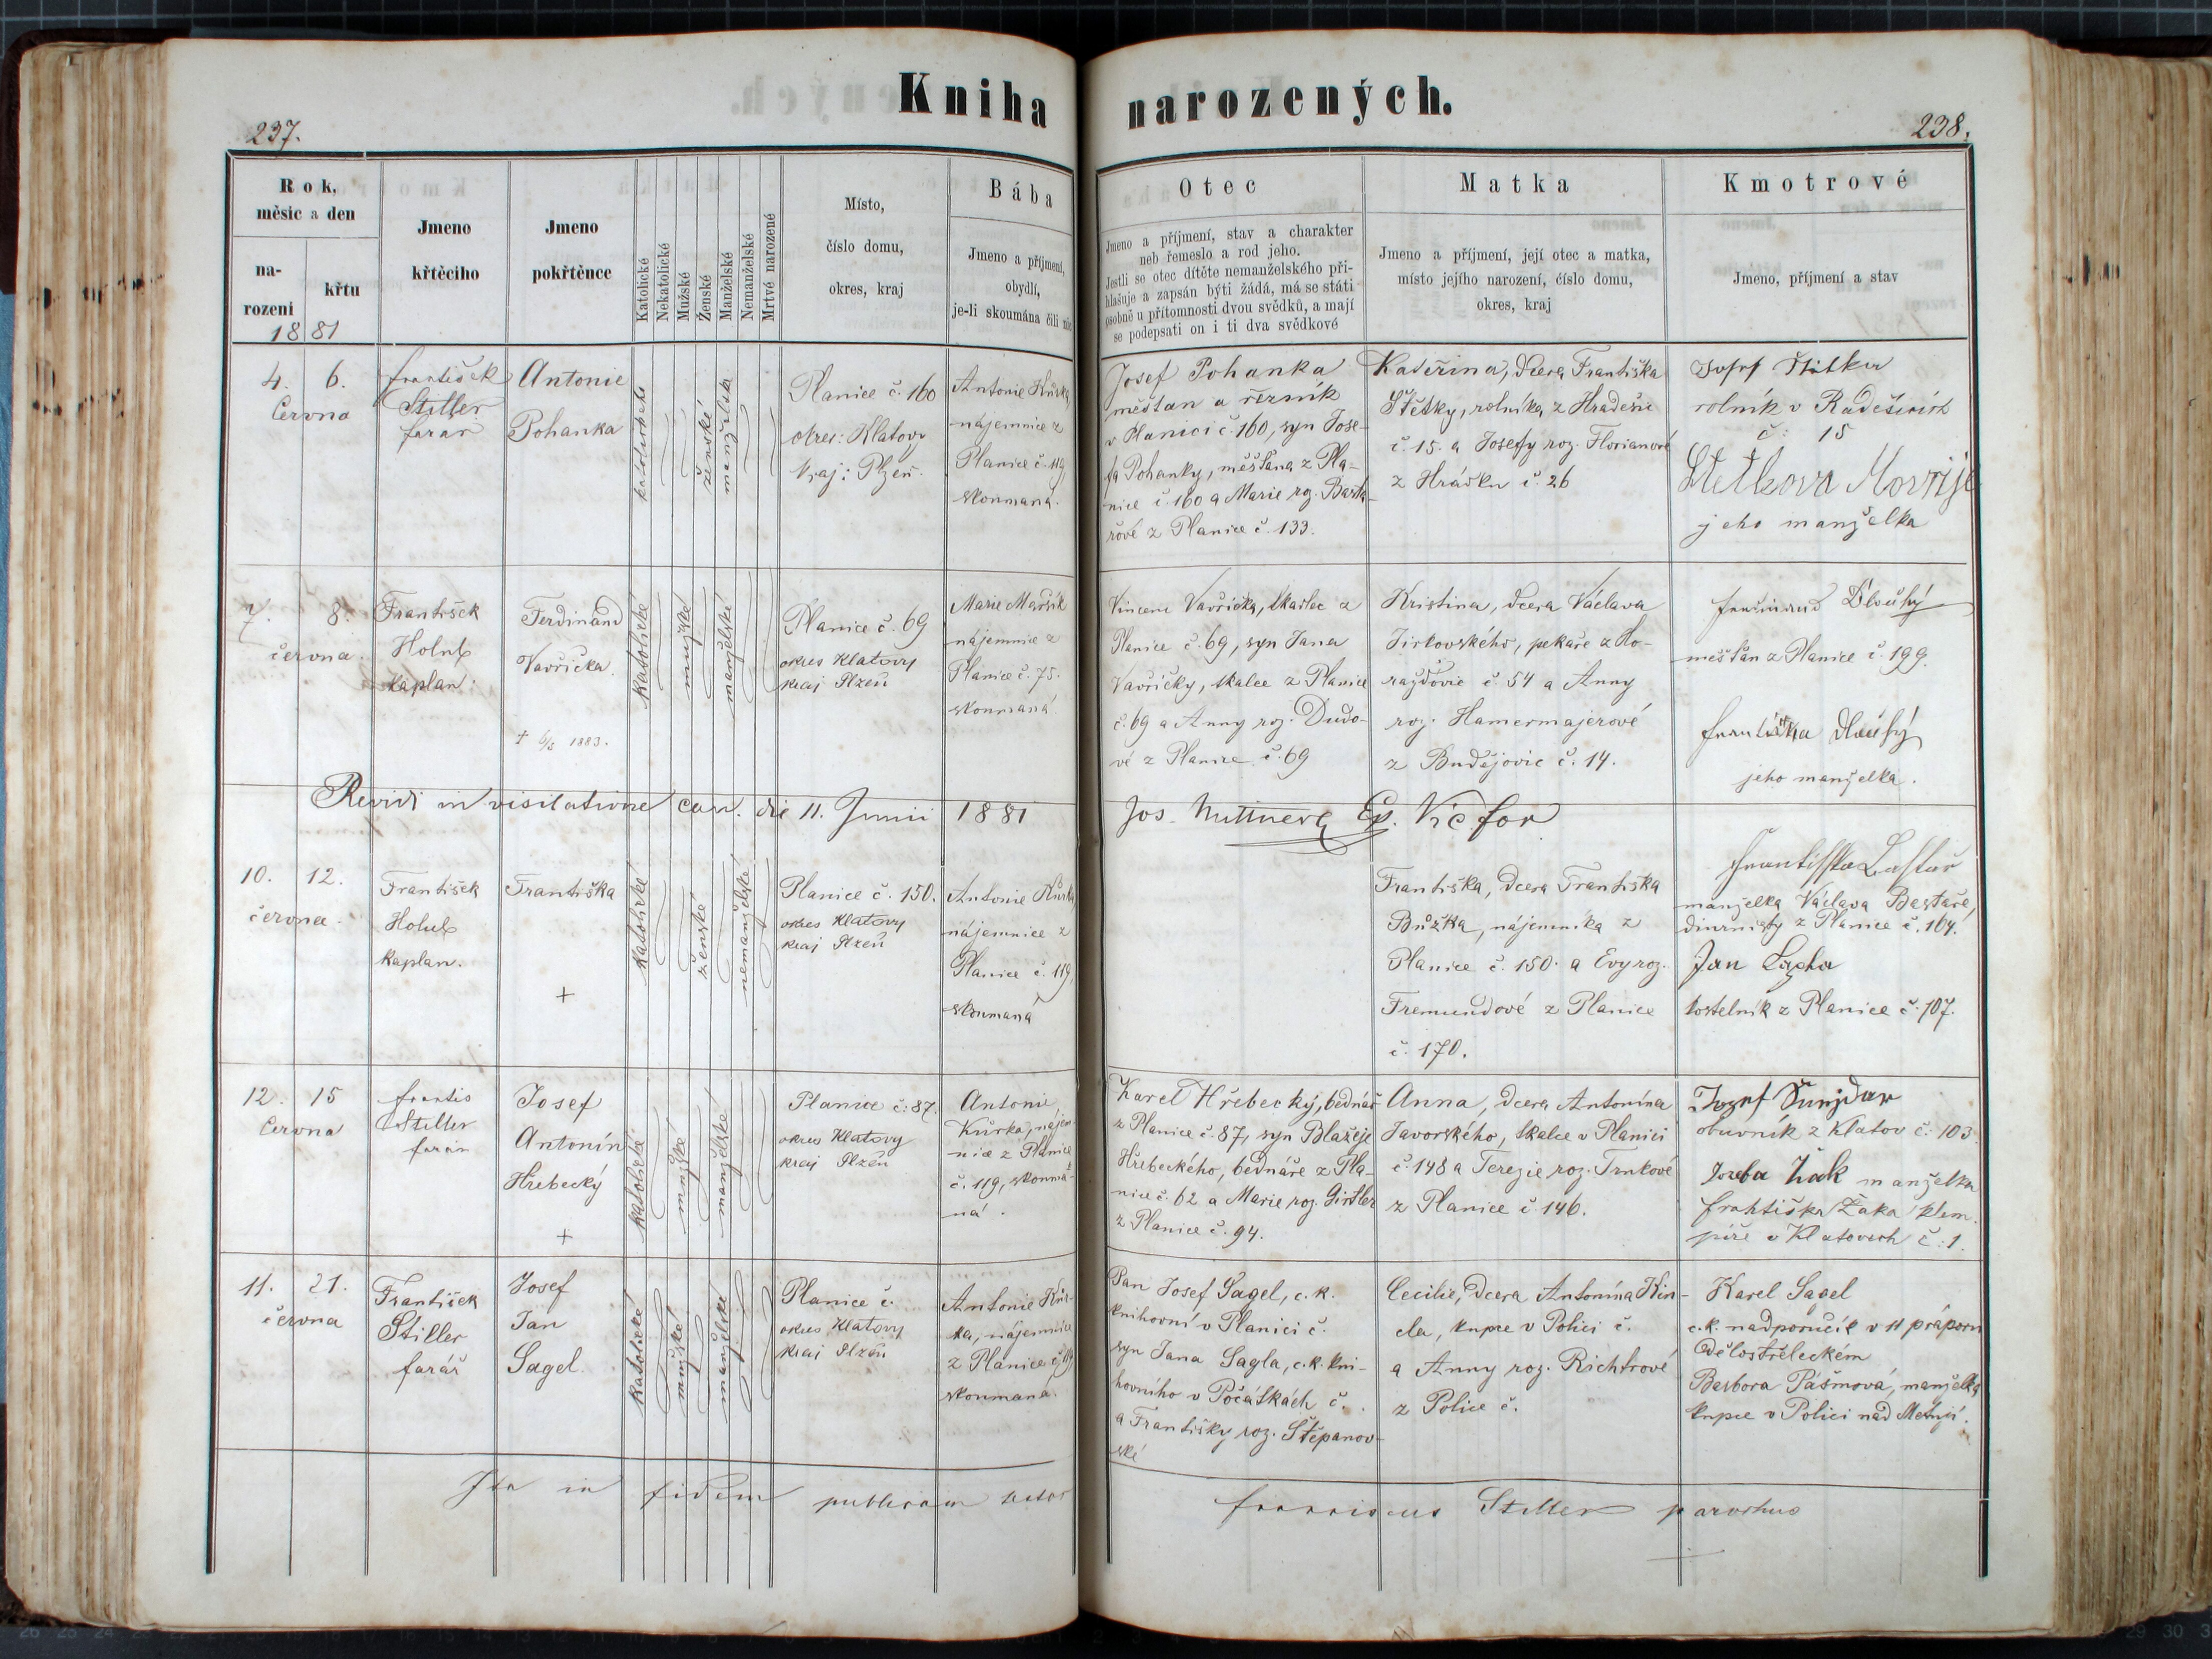 Kniha narozených.
237.
238.
Rok, měsíc a den
narození
křtu
1881
Jmeno křtěcího
Jmeno pokřtěnce
Katolické
Nekatolické
Mužské
Ženské
Manželské
Nemanželské
Mrtvé narozené
Místo,
číslo domu,
okres, kraj
Bába
Jmeno a příjmení,
obydlí,
je-li skoumána čili nic
Otec
Jmeno a příjmení, stav a charakter
neb řemeslo a rod jeho.
Jestli se otec dítěte nemanželského při-
hlašuje a zapsán býti žádá, má se státi
osobně u přítomnosti dvou svědků, a mají
se podepsati on i ti dva svědkové
Matka
Jmeno a příjmení, její otec a matka,
místo jejího narození, číslo domu,
okres, kraj
Kmotrové
Jmeno, příjmení a stav
4. 6.
června
František
Stiller
farář
Antonie
Pohanka
katolické
ženské
manželské
Planice č. 160
okres: Klatovy
Kraj: Plzeň.
Antonie Kůrka,
nájemnice z
Planice č. 119,
skoumaná.
Josef Pohanka
měšťan a řezník
v Planici č. 160, syn Jose-
fa Pohanky, měšťana z Pla-
nice č. 160 a Marie roz.
z Planice č. 133.
Kateřina, dcera Františka
Štětky, rolníka z
č. 15. a Josefy roz. Florianové
z Hrádku č. 26
Josef Štětka
rolník v
č: 15
jeho manželka
7. 8.
června.
František
Holub
kaplan.
Ferdinand
Vavřička.
† 6/3 1883.
katolické
mužské
manželské
Planice č. 69
okres Klatovy
kraj Plzeň
Marie
nájemnice z
Planice č. 75.
skoumaná.
Vincenc Vavřička, tkadlec z
Planice č. 69, syn Jana
Vavřičky, tkalce z Planice
č. 69 a Anny roz. Dudo-
vé z Planice č. 69
Kristina, dcera Václava
Jirkovského, pekaře z Ho-
ražďovic č. 54 a Anny
roz. Hamermajerové
z Budějovic č. 14.
Ferdinand Dlouhý
měšťan z Planice č. 199.
Františka Dlouhý
jeho manželka.
Revidi in visitatione can. die 11. Junii 1881
Jos. Ep. Vic for
10. 12.
června.
František
Holub
kaplan.
Františka
+
katolické
ženské
nemanželské
Planice č. 150.
okres Klatovy
kraj Plzeň
Antonie Kůrka,
nájemnice z
Planice č. 119,
skoumaná
Františka, dcera Františka
Bůžka, nájemníka z
Planice č. 150. a Evy roz.
Fremundové z Planice
č. 170.
Františka
manželka Václava
diurnisty z Planice č. 164.
Jan
kostelník z Planice č. 107.
12. 15
června
Stiller
farář
Josef
Antonín
Hřebecký
+
katolické
mužské
manželské
Planice č. 87.
okres Klatovy
kraj Plzeň
Antonie
Kůrka, nájem-
nice z Planice
č. 119, skoumá-
ná.
Karel Hřebecký, bednář
z Planice č. 87, syn Blažeje
Hřebeckého, bednáře z Pla-
nice č. 62 a Marie roz. Girstler
z Planice č. 94.
Anna, dcera Antonína
Javorského, tkalce v Planici
č. 148 a Terezie roz. Trnkové
z Planice č. 146.
Josef
obuvník z Klatov č. 103
Žák manželka
Františka Žáka klem-
píře v Klatovech č: 1.
11. 21.
června
František
Stiller
farář
Josef
Jan
Sagel.
katolické
mužské
manželské
Planice č.
okres Klatovy
kraj Plzeň
Antonie Kůr-
ka, nájemnice
z Planice č. 119
skoumaná.
Pan Josef Sagel, c. k.
knihovní v Planici č.
syn Jana Sagla, c. k. kni-
hovního v Počátkách č.
a Františky roz. Štěpanov-
ské
Cecilie, dcera Antonína Kin-
cla, kupce v Polici č.
a Anny roz. Richtrové
z Police č.
Karel Sagel
c. k. nadporučík v 11 práporu
dělostřeleckém
Barbora Pášmová, manželka
kupce v Polici nad Metují.
Ita in fidem publicam testor
Franciscus Stiller parochus